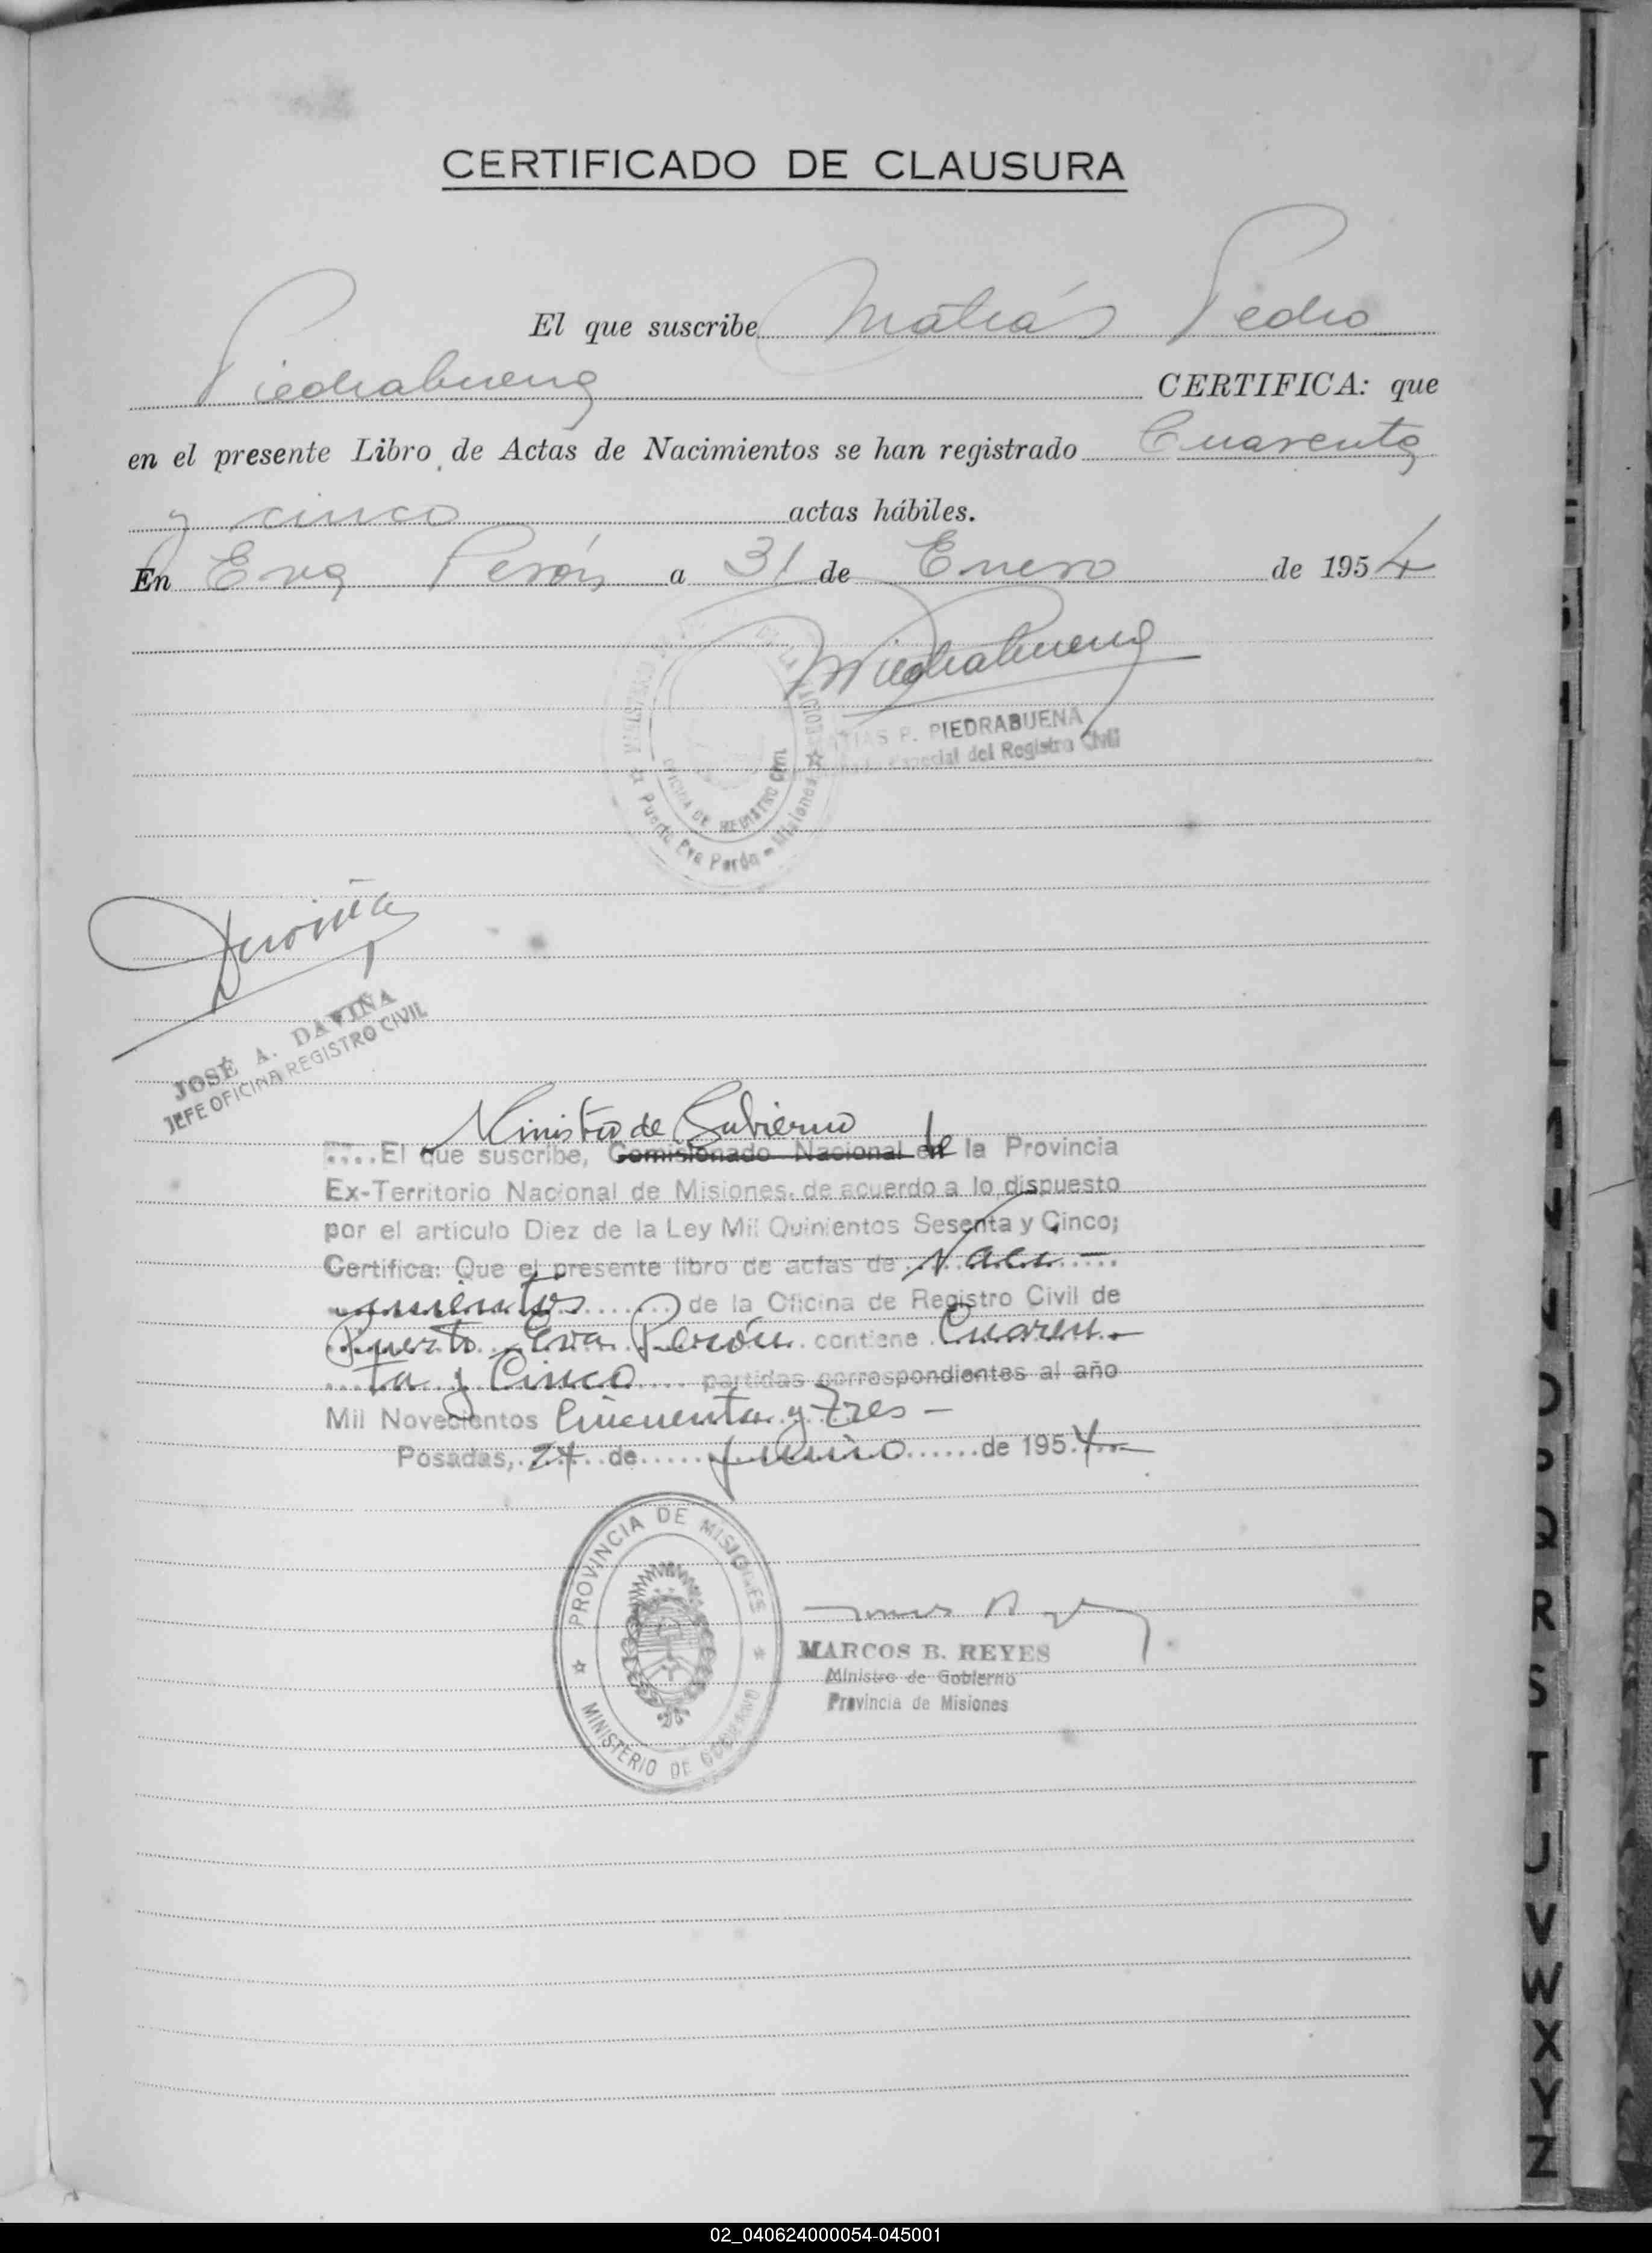 CERTIFICADO DE CLAUSURA
El que suscribe Matías Pedro
Piedrabuena CERTIFICA: que
en el presente Libro de Actas de Nacimientos se han registrado Cuarenta
y cinco actas hábiles.
En Eva Perón a 31 de Enero de 1954
MPiedrabuena
REGISTRO
OFICINA DE REGISTRO CIVIL
Puerto Eva Perón - Misiones
TIAS P. PIEDRABUENA
Especial del Registro Civil
Daviña
JOSÉ A. DAVIÑA
JEFE OFICINA REGISTRO CIVIL
Ministro de Gobierno
....El que suscribe, Comisionado Nacional en de la Provincia
Ex-Territorio Nacional de Misiones, de acuerdo a lo dispuesto
por el artículo Diez de la Ley Mil Quinientos Sesenta y Cinco;
Certifica: Que el presente libro de actas de Naci-
mientos de la Oficina de Registro Civil de
Puerto Eva Perón contiene Cuaren-
ta y Cinco partidas correspondientes al año
Mil Novecientos Cincuenta y Tres -
Posadas, 24 de junio de 1954
PROVINCIA DE MISIONES
MINISTERIO DE GOBIERNO
MARCOS B. REYES
Ministro de Gobierno
Provincia de Misiones
O
P
Q
R
S
T
U
V
W
X
Y
Z
02_040624000054-045001